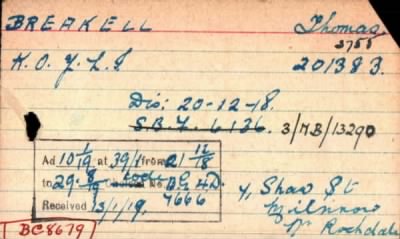 BREAKELL Thomas
3755
K.O.Y.L.I 201383.
Dis: 20-12-18.
S.B.Y. 6136. 3/MB/13290
Ad 10 1/19 at 39/- from 21 12/18
to 29. 8/9 No. BG 4D.
Received 13/1/19. 7666
4, Shaw St
Milnrow
Nr Rochdale
BC8679